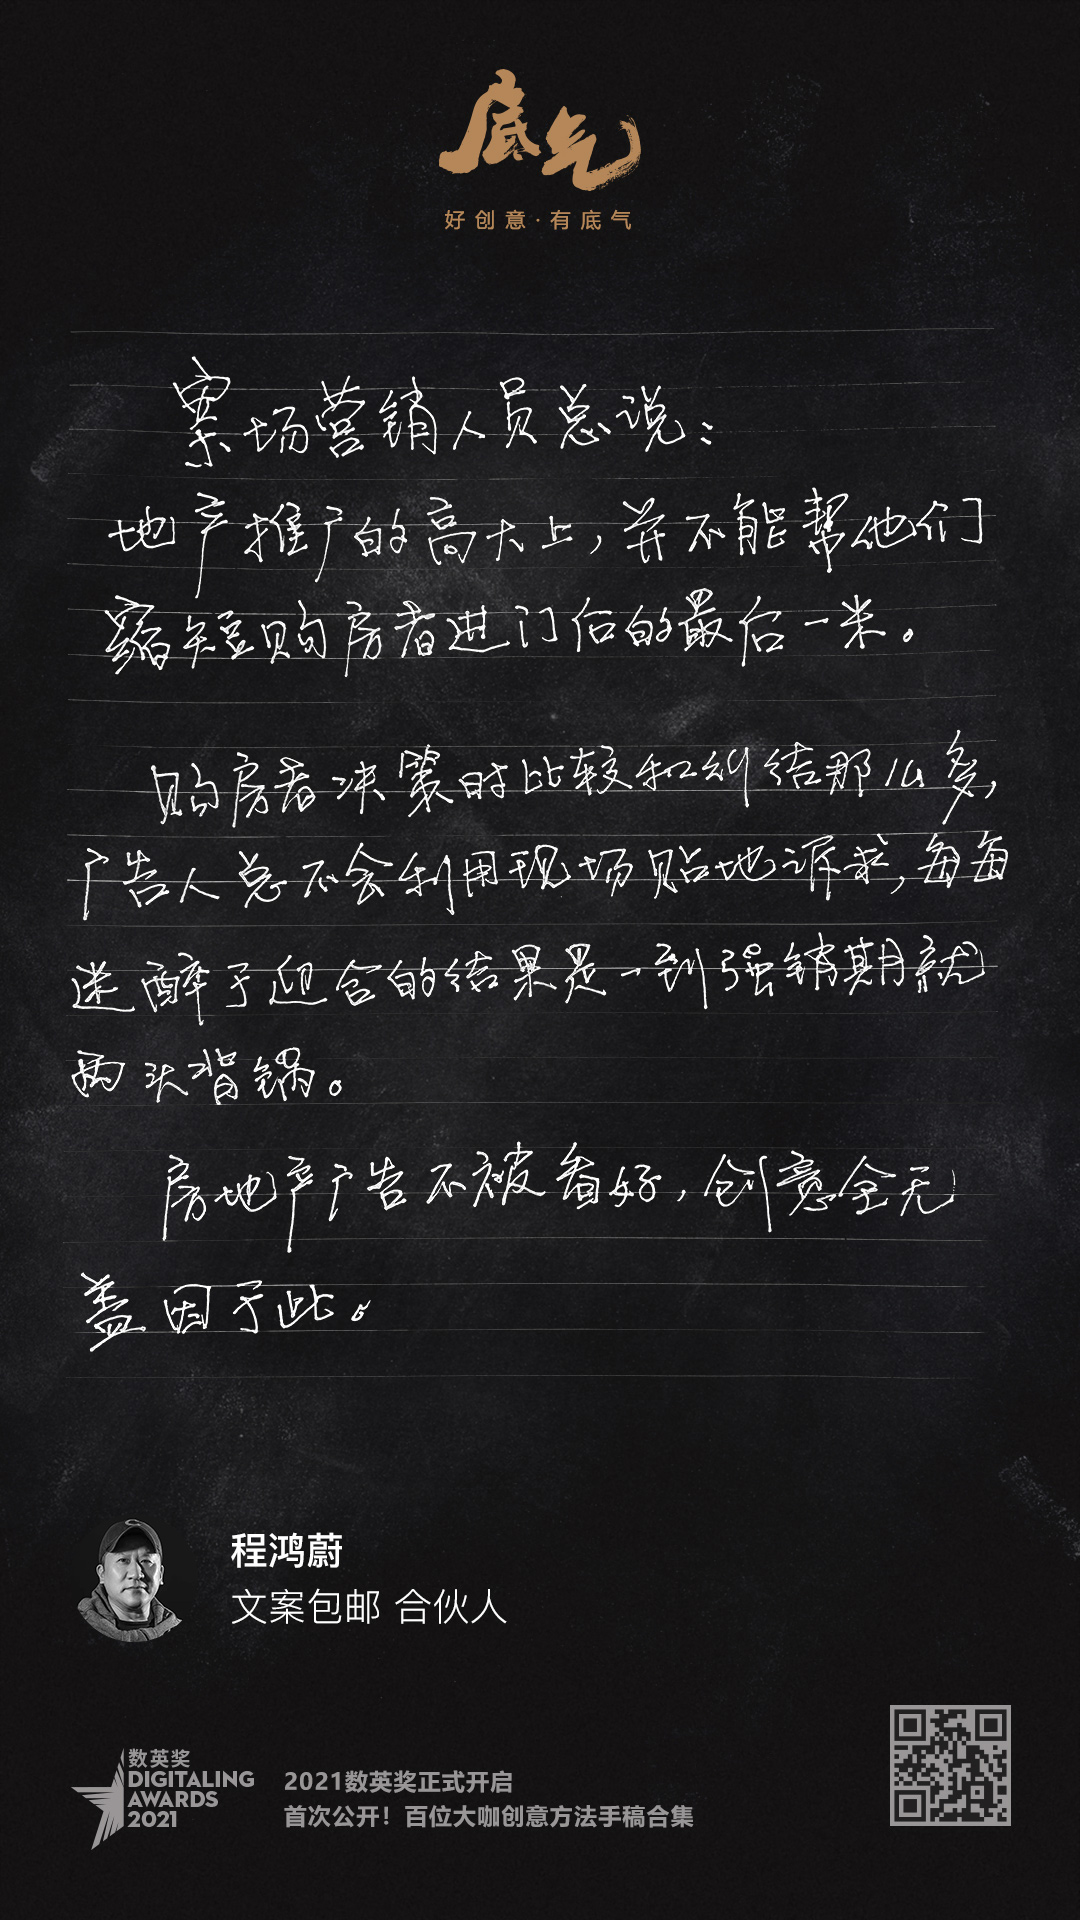 底气
好创意·有底气
案场营销人员总说：
地产推广的高大上，并不能帮他们
缩短购房者进门后的最后一米。
购房者决策时比较和纠结那么多，
广告人总不会利用现场贴地诉求，每每
迷醉于迎合的结果是一到强销期就
两头背锅。
房地产广告不被看好，创意全无
盖因于此。
程鸿蔚
文案包邮 合伙人
数英奖
DIGITALING
AWARDS
2021
2021数英奖正式开启
首次公开！百位大咖创意方法手稿合集